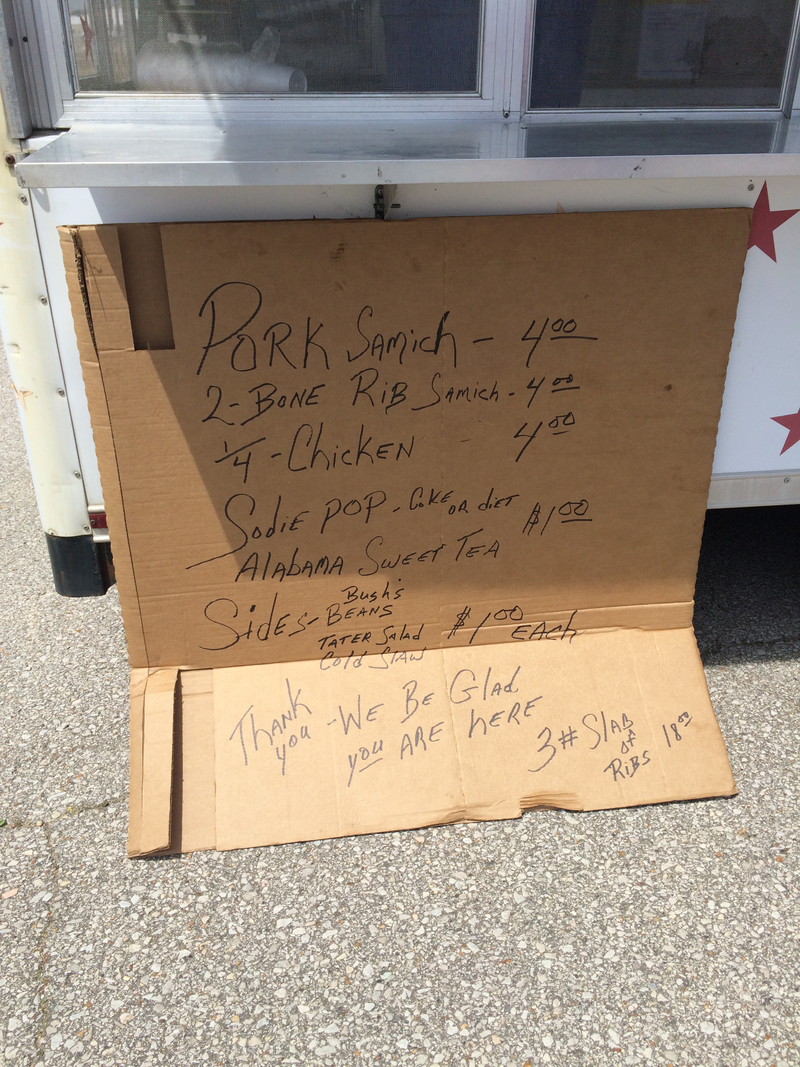 PORK Samich - 4.00
2-BONE RiB Samich - 4.00
1/4 - Chicken - 4.00
Sodie POP - Coke OR diET $1.00
AlABAMA SWEET TEA
Bush's
Sides - BEANS $1.00 EACh
TATER Salad
Cold Slaw
THANK YOU - WE BE Glad
you ARE hERE
3# SlAB of RiBS 18.00